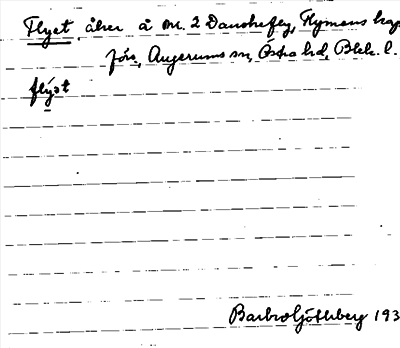 Flyet, åker å nr. 2 Danskefly, Flymens kap-
förs., Augerums sn, Östra hd, Blek. l.
flýət
Barbro Göthberg 193